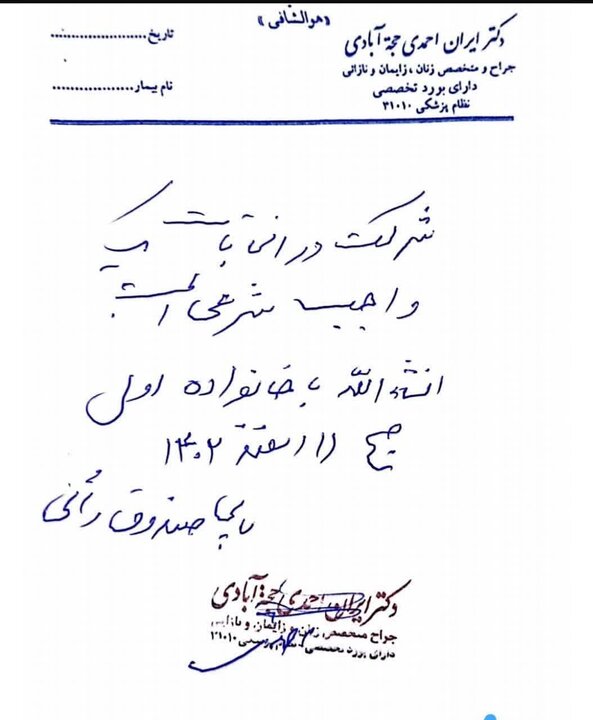 «هوالشافی»
دکتر ایران احمدی حجة آبادی
جراح و متخصص زنان ، زایمان و نازائی
دارای بورد تخصصی
نظام پزشکی ۳۱۰۱۰
تاریخ
نام بیمار
شرکت در انتخابات یک
واجب شرعی است
انشاءالله با خانواده اول
صبح ۱۱ اسفند ۱۴۰۲
پای صندوق رأی
دکتر ایران احمدی حجة آبادی
جراح متخصص زنان و زایمان و نازایی
دارای بورد تخصصی - نظام پزشکی ۳۱۰۱۰